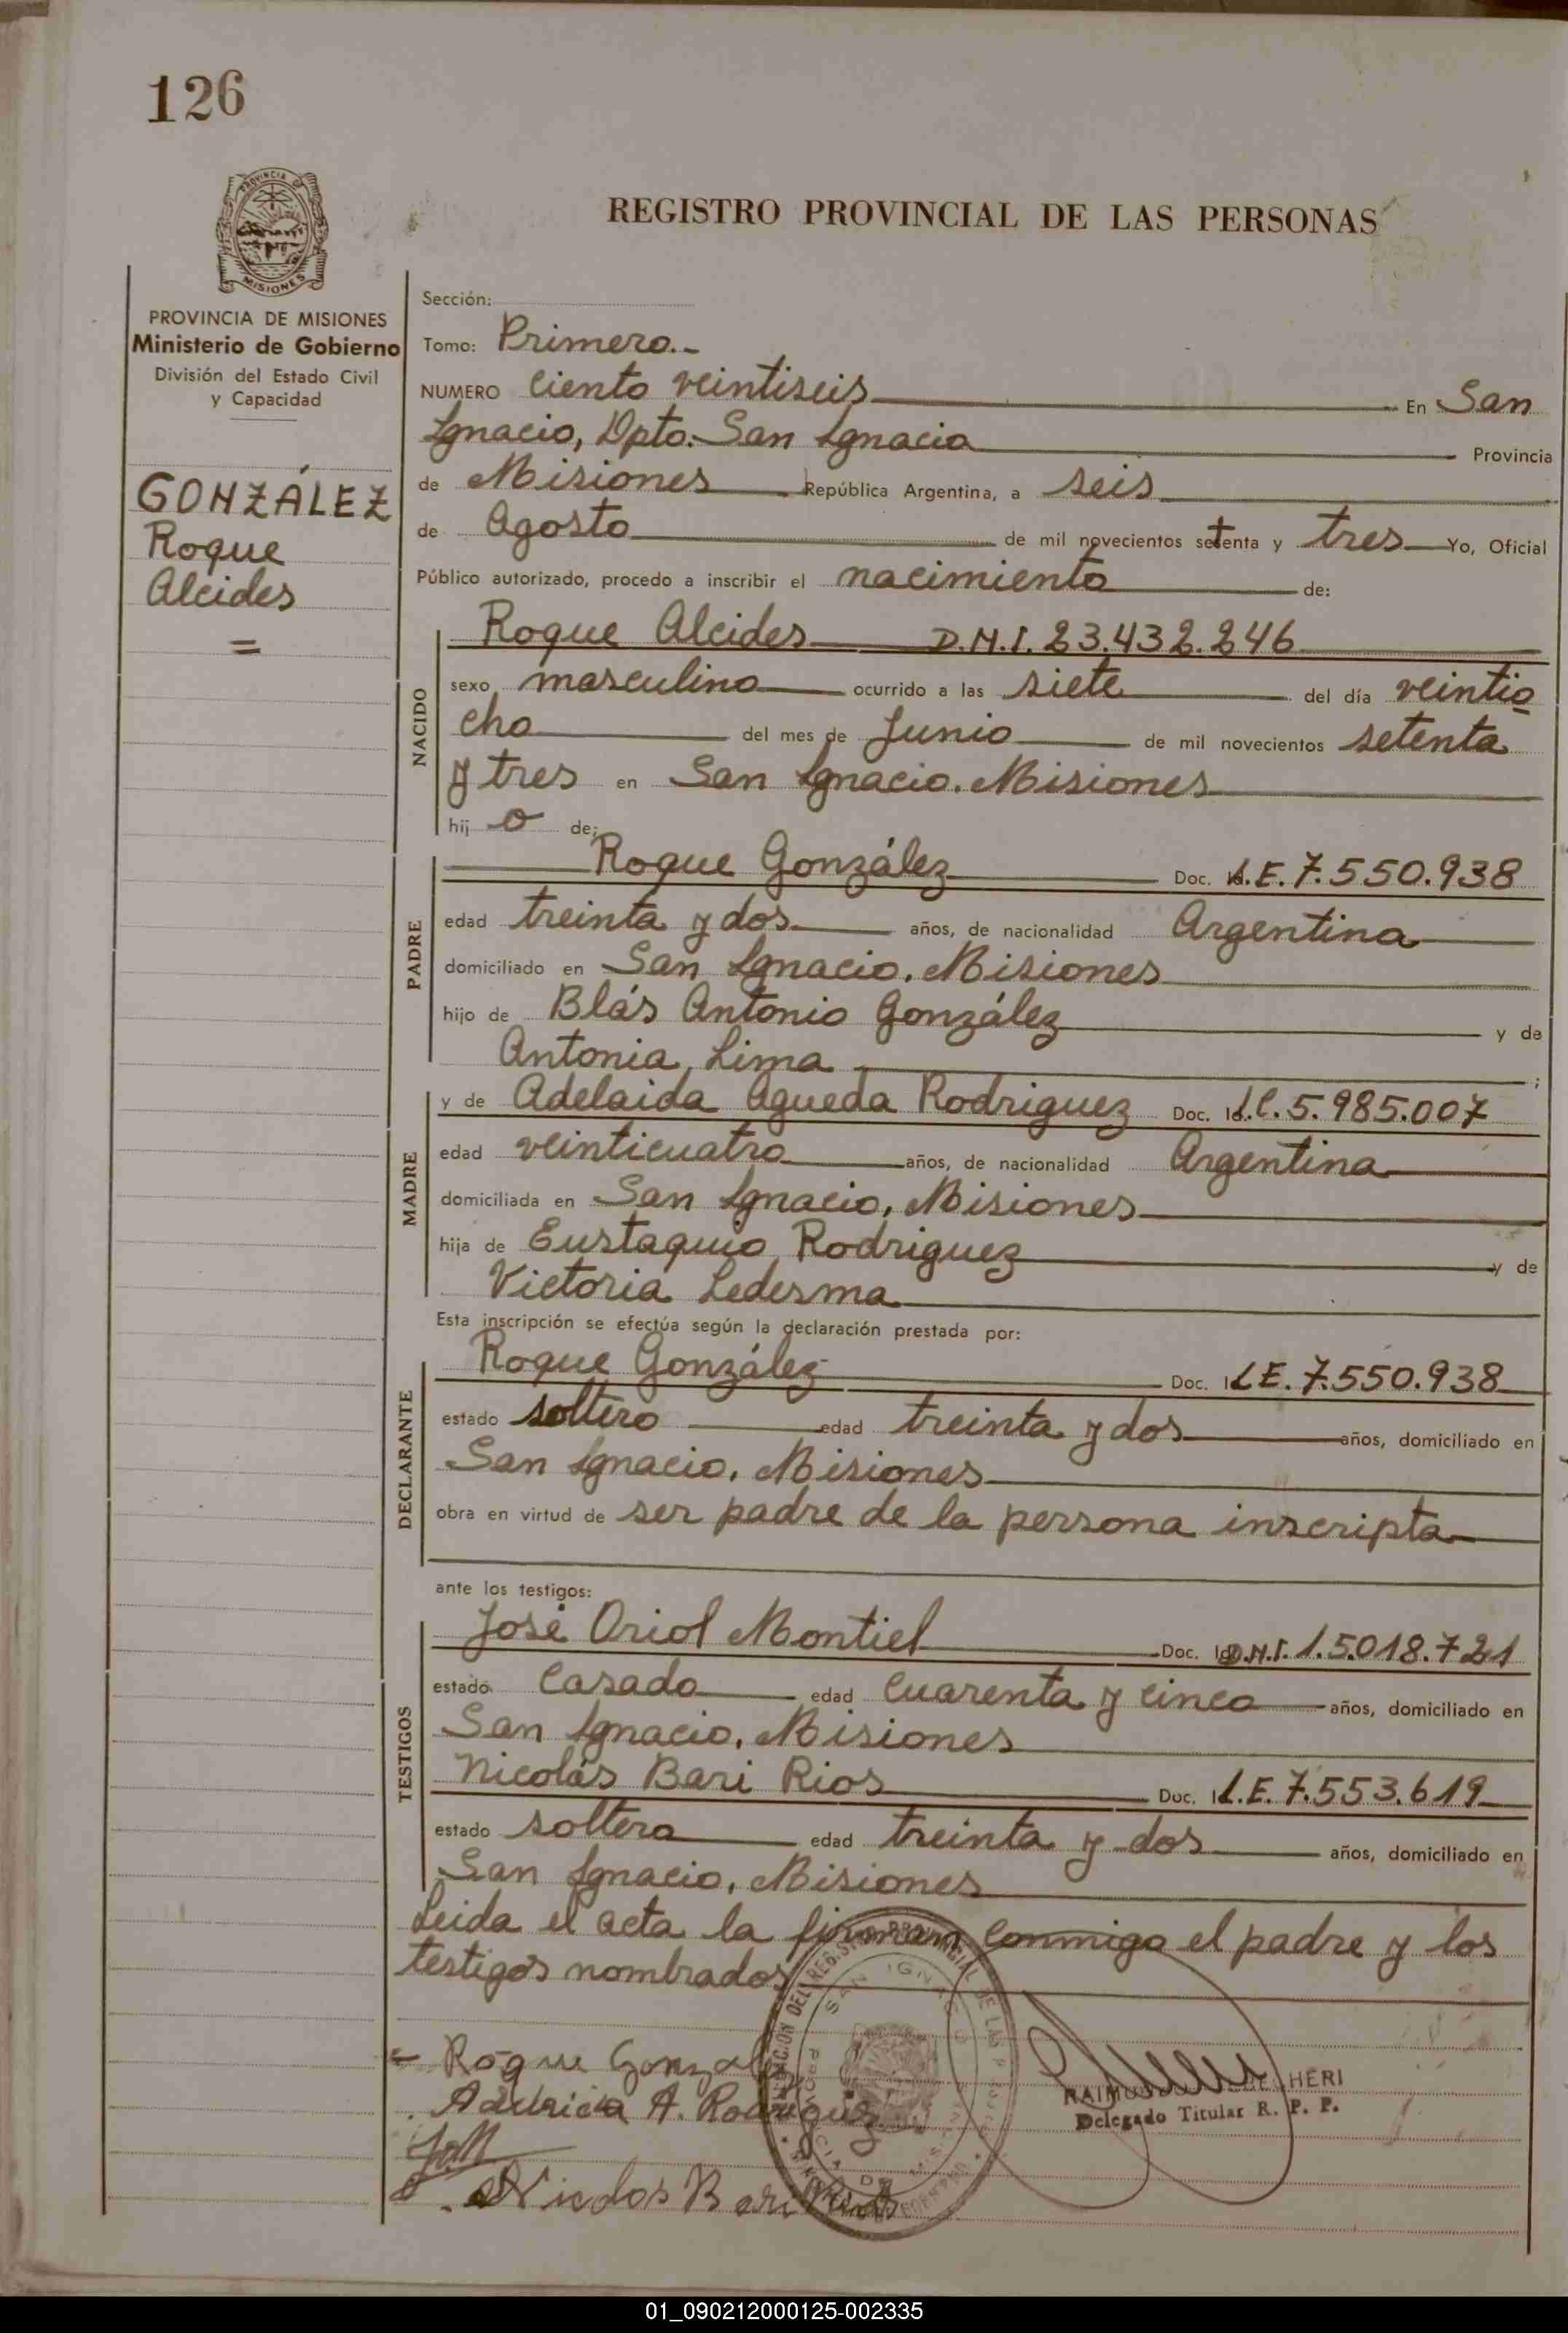 126
PROVINCIA DE
MISIONES
REGISTRO PROVINCIAL DE LAS PERSONAS
PROVINCIA DE MISIONES
Ministerio de Gobierno
División del Estado Civil
y Capacidad
GONZÁLEZ
Roque
Alcides
=
Sección:
Tomo: Primero.-
NUMERO Ciento veintiseis En San
Ignacio, Dpto. San Ignacio Provincia
de Misiones República Argentina, a seis
de Agosto de mil novecientos setenta y tres Yo, Oficial
Público autorizado, procedo a inscribir el nacimiento de:
NACIDO
Roque Alcides D.N.I. 23.432.246
sexo masculino ocurrido a las siete del día veintio
cho del mes de Junio de mil novecientos setenta
y tres en San Ignacio. Misiones
hij o de;
PADRE
Roque González Doc. Id. L.E. 7.550.938
edad treinta y dos años, de nacionalidad Argentina
domiciliado en San Ignacio. Misiones
hijo de Blás Antonio González y de
Antonia Lima ;
MADRE
y de Adelaida Agueda Rodriguez Doc. Id. L.C. 5.985.007
edad veinticuatro años, de nacionalidad Argentina
domiciliada en San Ignacio, Misiones
hija de Eustaquio Rodriguez y de
Victoria Ledesma
Esta inscripción se efectúa según la declaración prestada por:
DECLARANTE
Roque González Doc. I L.E. 7.550.938
estado soltero edad treinta y dos años, domiciliado en
San Ignacio. Misiones
obra en virtud de ser padre de la persona inscripta
ante los testigos:
TESTIGOS
José Oriol Montiel Doc. Id. D.N.I. 1.5.018.721
estado Casado edad Cuarenta y cinco años, domiciliado en
San Ignacio. Misiones
Nicolás Bari Rios Doc. I L.E. 7.553.619
estado soltero edad treinta y dos años, domiciliado en
San Ignacio. Misiones
Leida el acta la firman conmigo el padre y los
testigos nombrados
Roque Gonzalez
A. Rodriguez
Nicolas Bari Rios
SAN IGNACIO
RAIMUNDO HERI
Delegado Titular R. P. P.
01_090212000125-002335